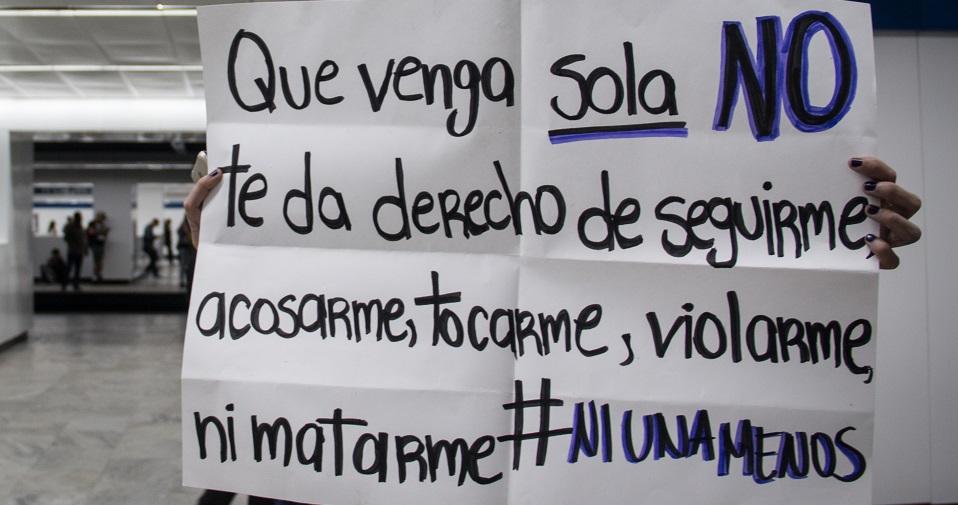 Que venga sola NO
te da derecho de seguirme,
acosarme, tocarme, violarme,
ni matarme #NIUNAMENOS